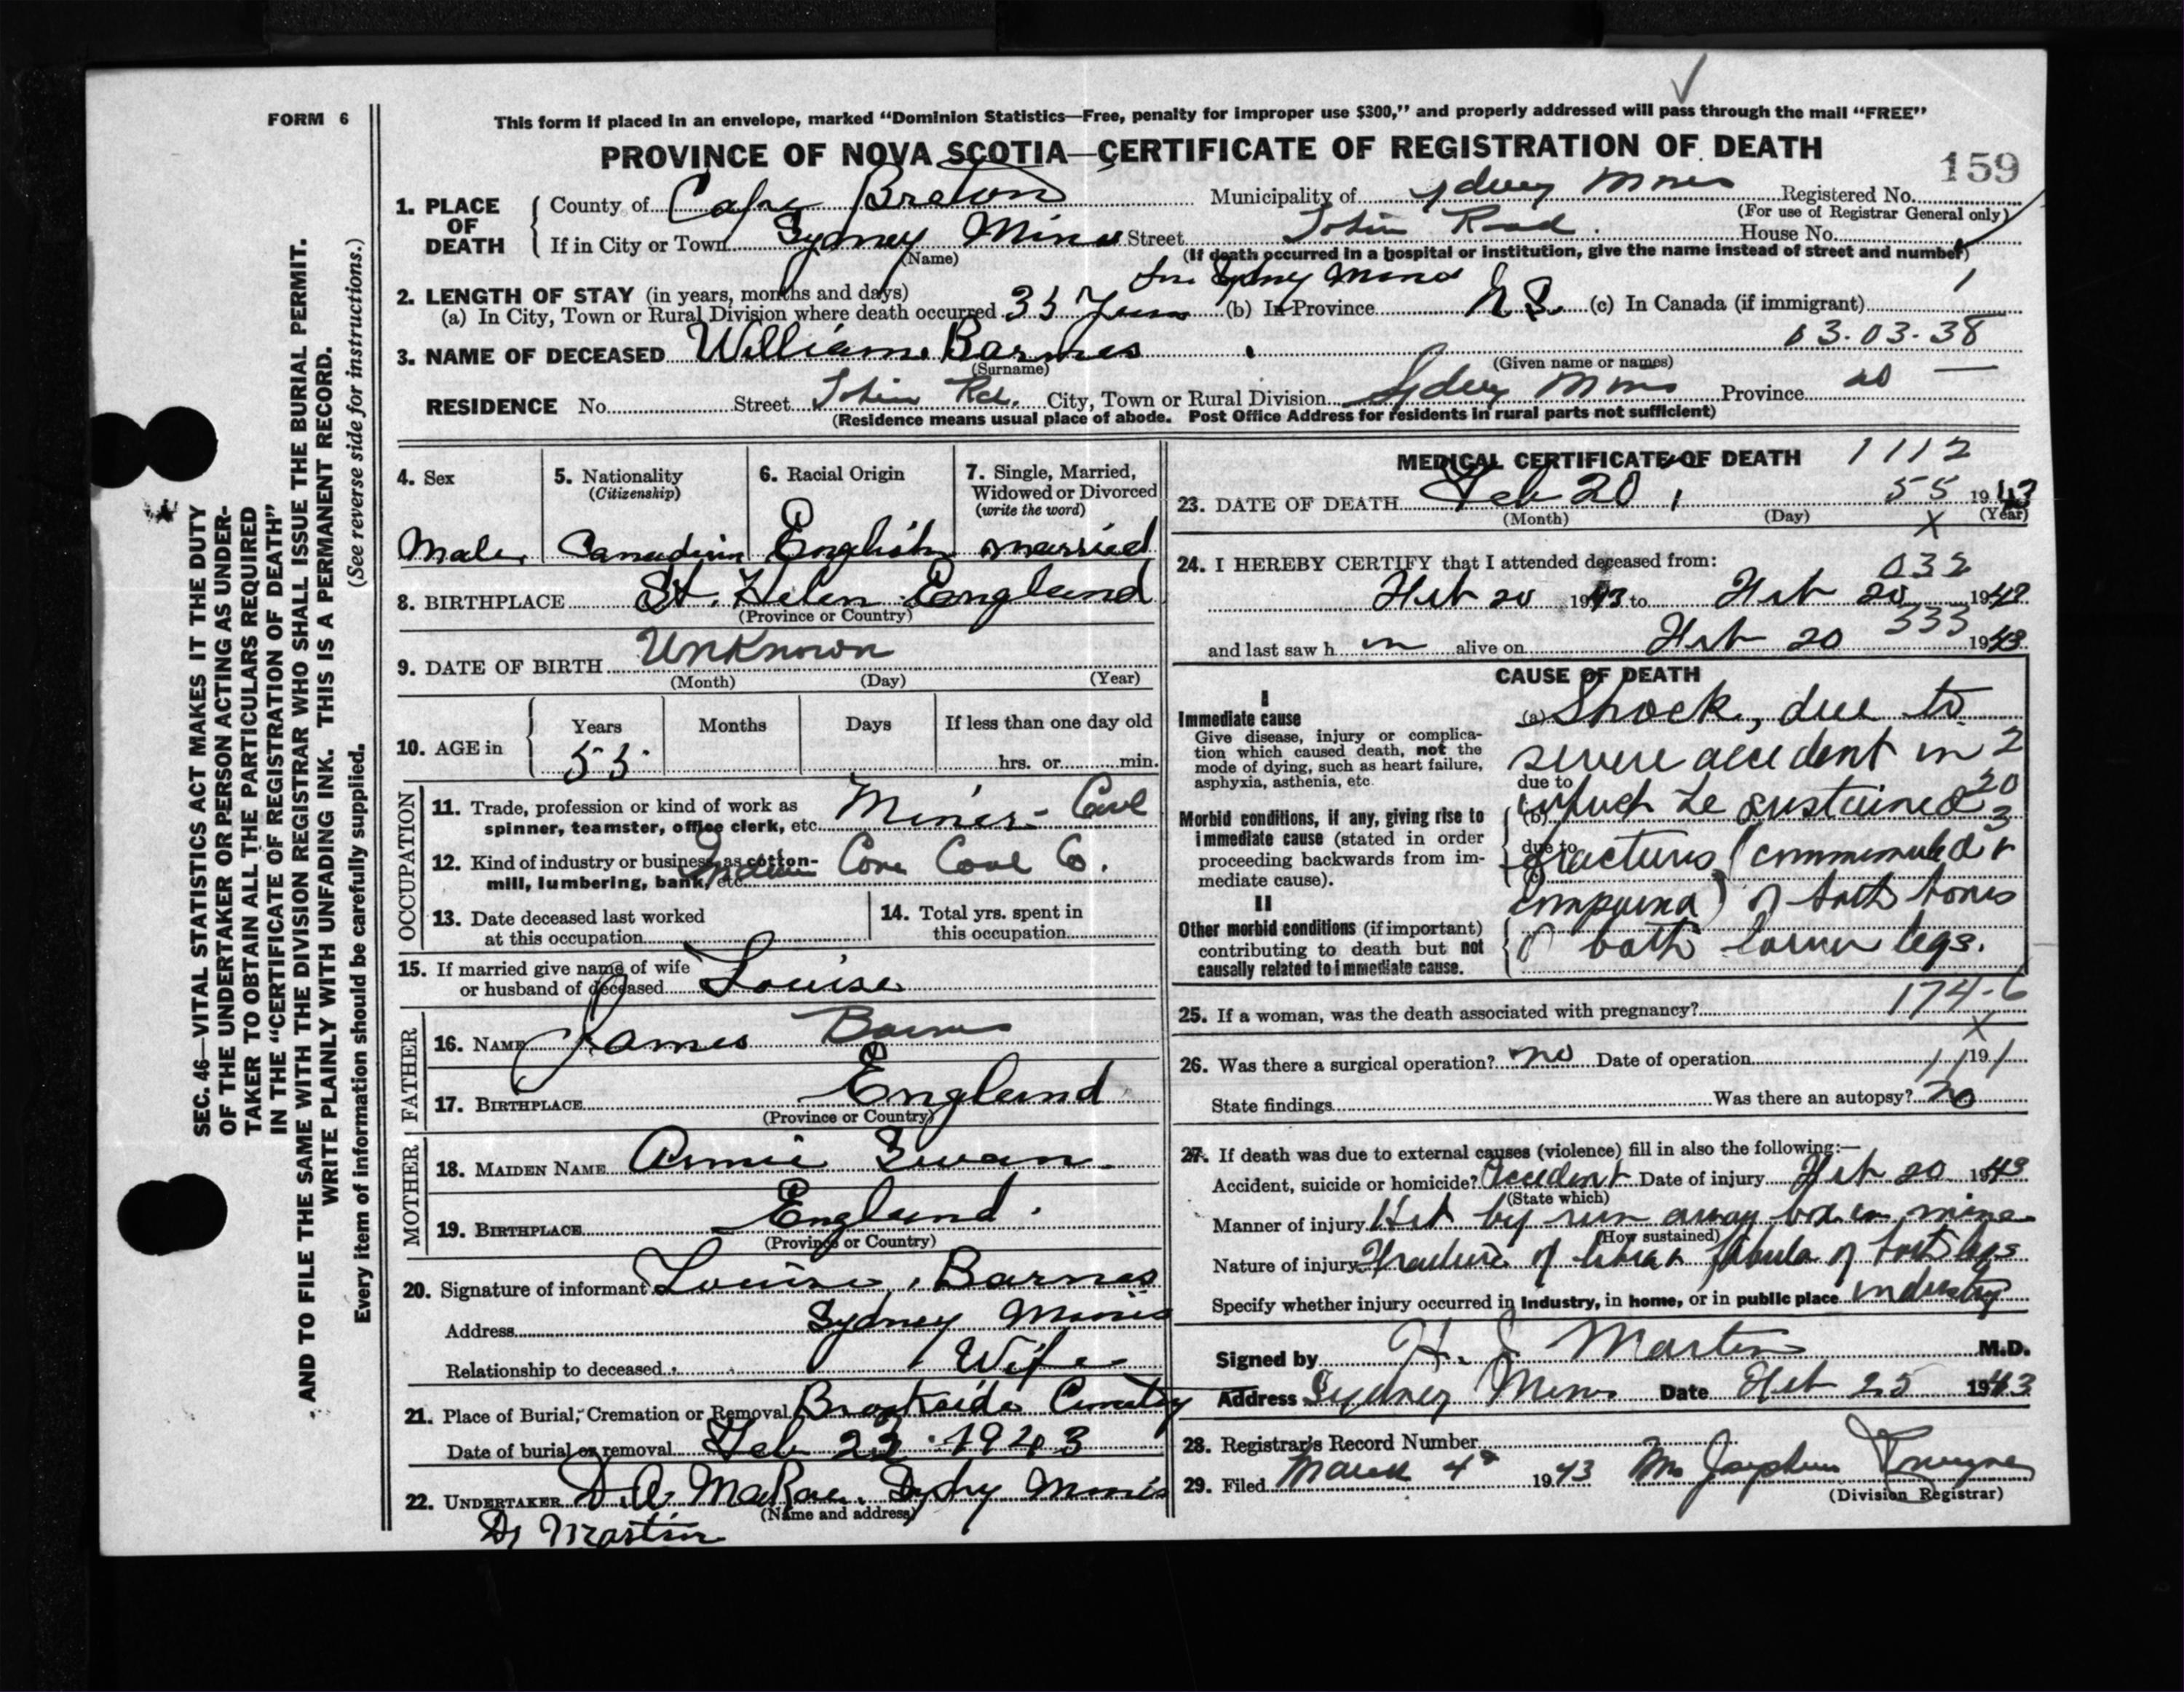 FORM 6
This form if placed in an envelope, marked "Dominion Statistics—Free, penalty for improper use $300," and properly addressed will pass through the mail "FREE"
PROVINCE OF NOVA SCOTIA—CERTIFICATE OF REGISTRATION OF DEATH
159
1. PLACE OF DEATH
County of Cape Breton Municipality of Sydney Mines Registered No.
(For use of Registrar General only)
If in City or Town Sydney Mines Street Tobin Road. House No.
(Name) (If death occurred in a hospital or institution, give the name instead of street and number)
In Sydney Mines
2. LENGTH OF STAY (in years, months and days)
(a) In City, Town or Rural Division where death occurred 35 Years (b) In Province N.S. (c) In Canada (if immigrant)
1
03-03-38
3. NAME OF DECEASED William Barnes
(Surname) (Given name or names)
RESIDENCE No. Street Tobin Rd. City, Town or Rural Division Sydney Mines Province 20 —
(Residence means usual place of abode. Post Office Address for residents in rural parts not sufficient)
4. Sex
Male
5. Nationality
(Citizenship)
Canadian
6. Racial Origin
English
7. Single, Married,
Widowed or Divorced
(write the word)
married
8. BIRTHPLACE St. Helen England
(Province or Country)
9. DATE OF BIRTH Unknown
(Month) (Day) (Year)
10. AGE in
Years Months Days If less than one day old
55 hrs. or min.
OCCUPATION
11. Trade, profession or kind of work as
spinner, teamster, office clerk, etc. Miner - Coal
12. Kind of industry or business, as cotton-
mill, lumbering, bank, etc. Indian Cove Coal Co.
13. Date deceased last worked
at this occupation
14. Total yrs. spent in
this occupation
15. If married give name of wife
or husband of deceased Louise
FATHER
16. NAME James Barnes
17. BIRTHPLACE England
(Province or Country)
MOTHER
18. MAIDEN NAME Annie Swan
19. BIRTHPLACE England.
(Province or Country)
20. Signature of informant Louise Barnes
Address Sydney Mines
Relationship to deceased Wife
21. Place of Burial, Cremation or Removal Brookside Cemetery
Date of burial or removal Feb 22. 1943
22. UNDERTAKER D.A. McRae. Sydney Mines
(Name and address)
Dr Martin
MEDICAL CERTIFICATE OF DEATH
1112
23. DATE OF DEATH Feb 20, 55 1943
(Month) (Day) (Year)
X
24. I HEREBY CERTIFY that I attended deceased from:
032
Feb 20 1943 to Feb 20 1943
333
and last saw h im alive on Feb 20 1943
CAUSE OF DEATH
I
Immediate cause
Give disease, injury or complica-
tion which caused death, not the
mode of dying, such as heart failure,
asphyxia, asthenia, etc.
Morbid conditions, if any, giving rise to
immediate cause (stated in order
proceeding backwards from im-
mediate cause).
II
Other morbid conditions (if important)
contributing to death but not
causally related to immediate cause.
(a) Shock, due to
severe accident in 2
due to
(b) which he sustained 20
3
due to
(c) fractures (comminuted &
compound) of both bones
of both lower legs.
174-6
25. If a woman, was the death associated with pregnancy?
X
26. Was there a surgical operation? no Date of operation 19
State findings Was there an autopsy? no
27. If death was due to external causes (violence) fill in also the following:—
Accident, suicide or homicide? Accident Date of injury Feb 20 1943
(State which)
Manner of injury Hit by run away box in mine
(How sustained)
Nature of injury Fracture of tibia & fibula of both legs
Specify whether injury occurred in industry, in home, or in public place industry
Signed by H. J. Martin M.D.
Address Sydney Mines Date Feb 25 1943
28. Registrar's Record Number
29. Filed March 4 1943
(Division Registrar)
SEC. 46—VITAL STATISTICS ACT MAKES IT THE DUTY
OF THE UNDERTAKER OR PERSON ACTING AS UNDER-
TAKER TO OBTAIN ALL THE PARTICULARS REQUIRED
IN THE "CERTIFICATE OF REGISTRATION OF DEATH"
AND TO FILE THE SAME WITH THE DIVISION REGISTRAR WHO SHALL ISSUE THE BURIAL PERMIT.
WRITE PLAINLY WITH UNFADING INK. THIS IS A PERMANENT RECORD.
Every item of information should be carefully supplied. (See reverse side for instructions.)